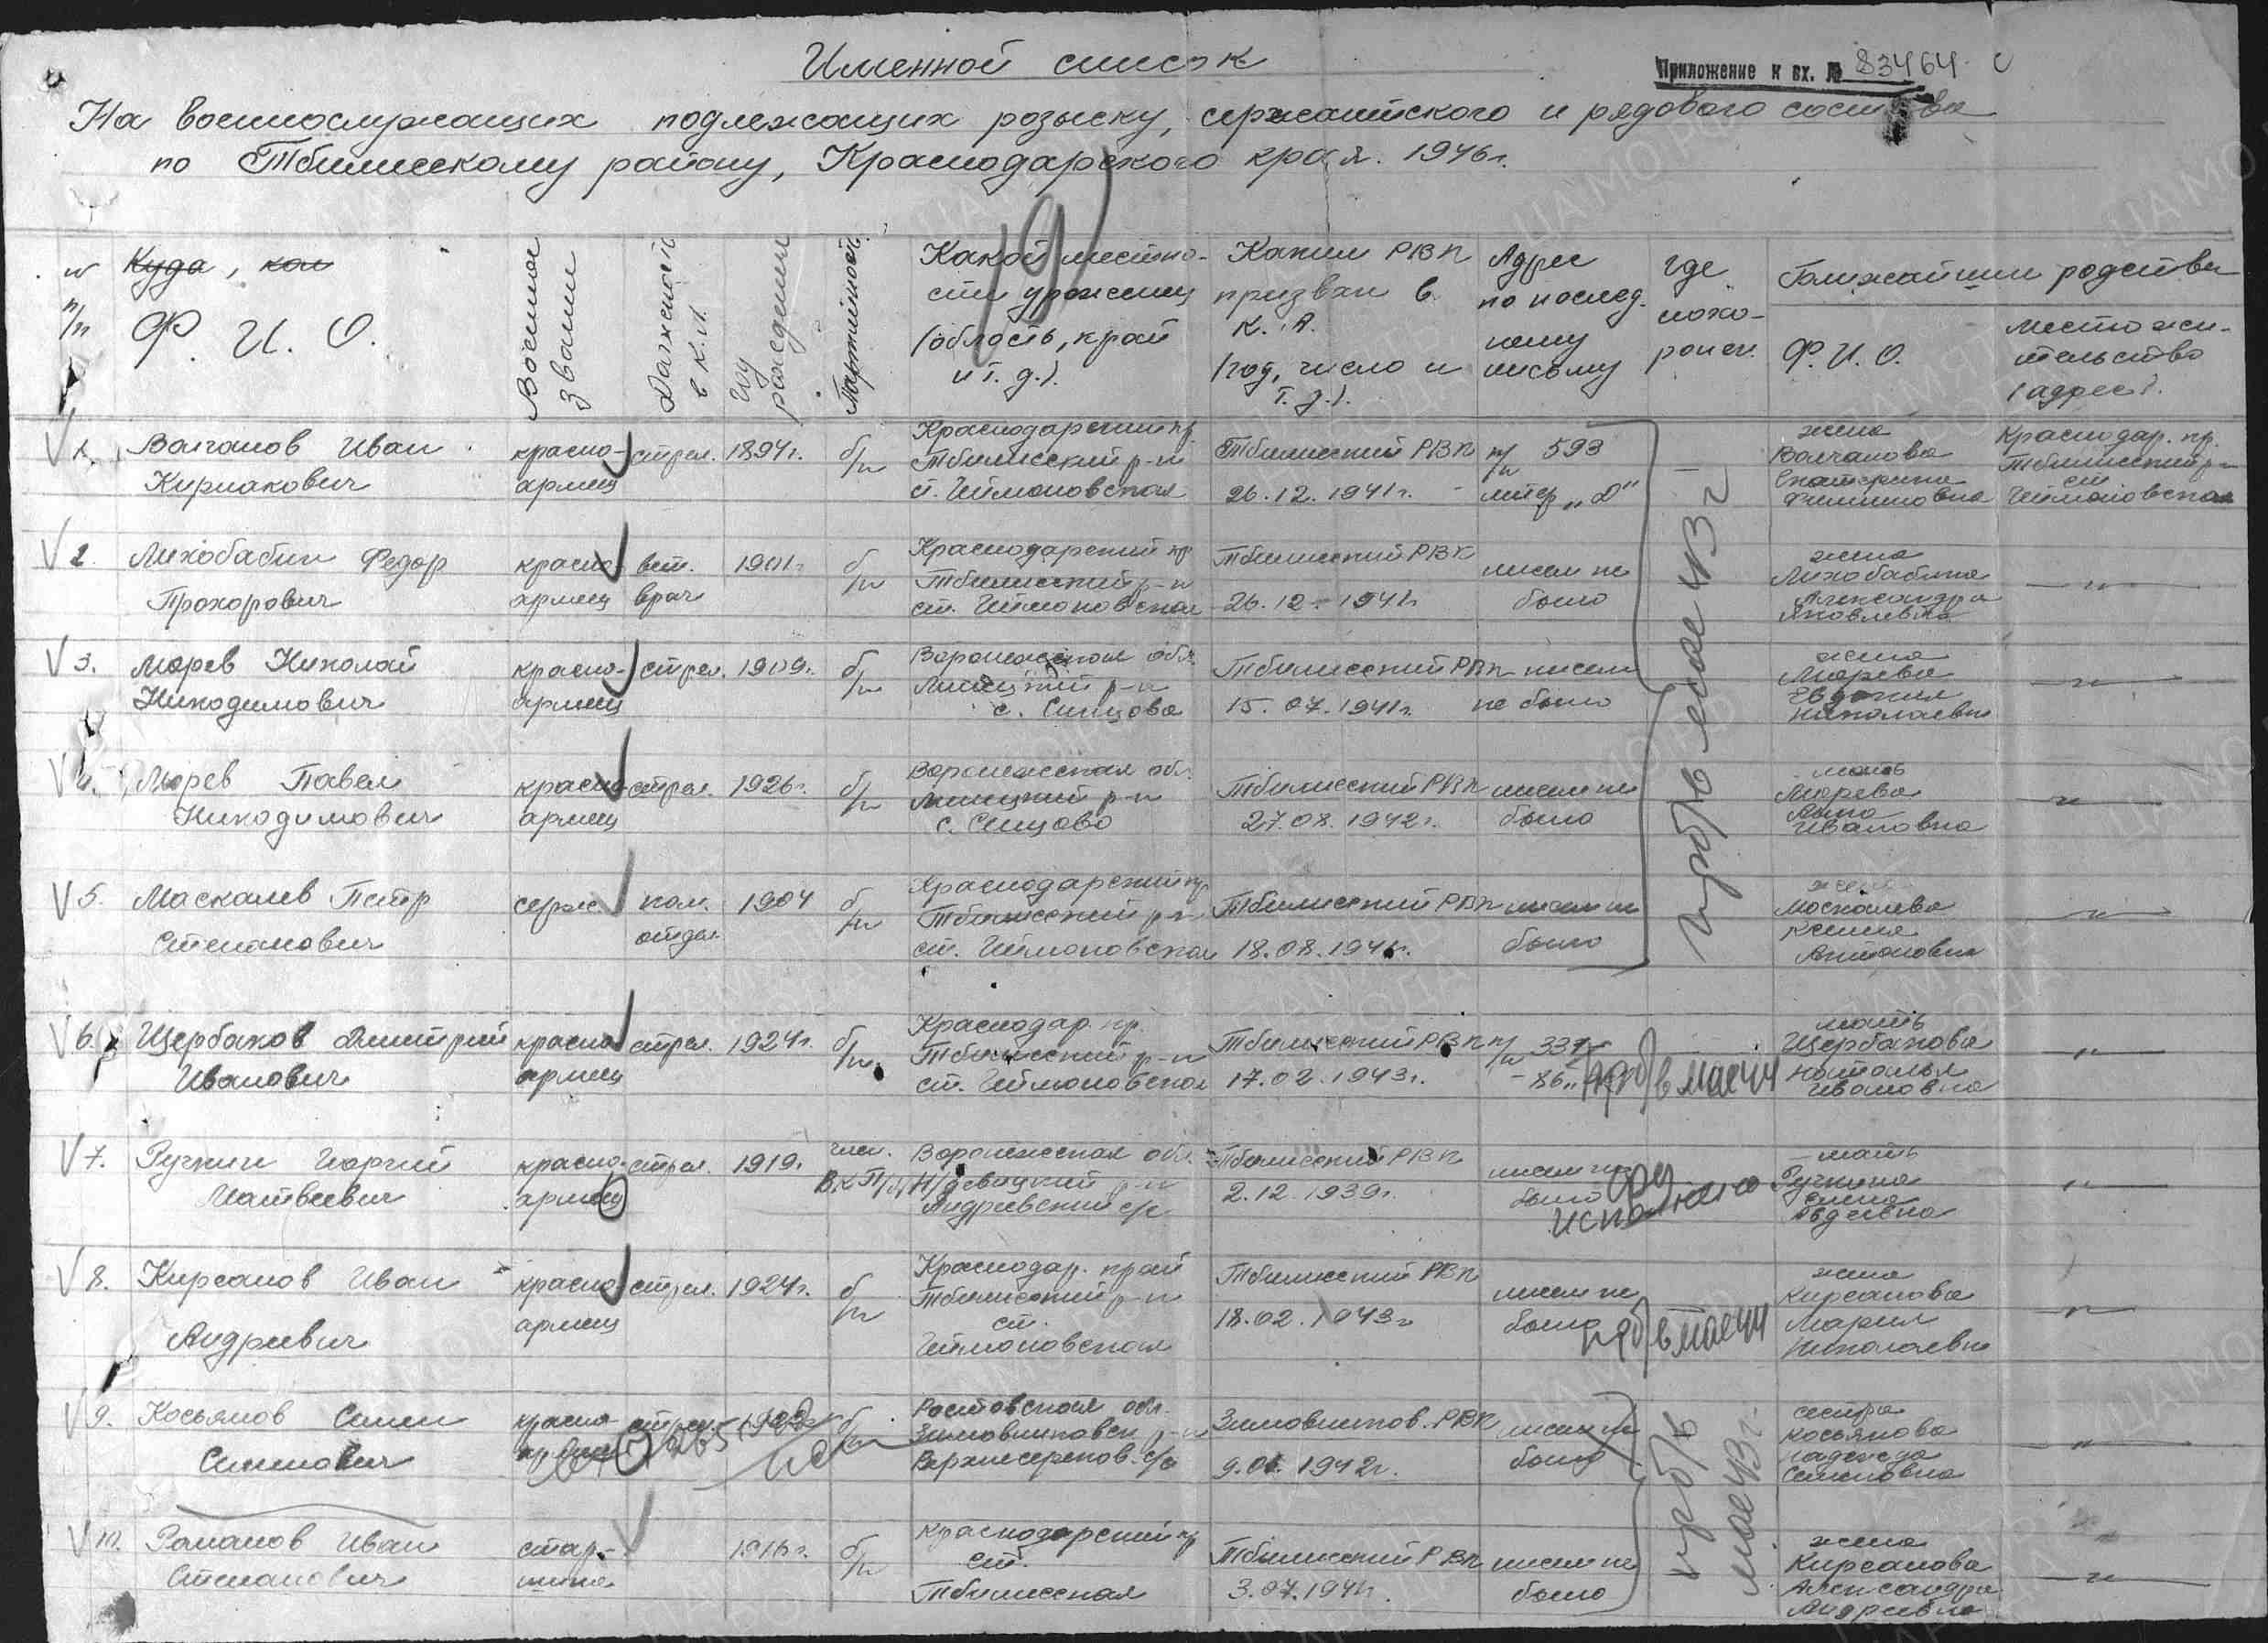 Именной список
Приложение к вх. № 83464 с
На военнослужащих подлежащих розыску, сержантского и рядового состава
по Тбилисскому району, Краснодарского края. 1946 г.
19
№ п/п
Куда, кол
Ф. И. О.
Военное звание
Должность в К.А.
Год рождения
Партийность
Какой местности уроженец (область, край и т. д.).
Каким РВК призван в К. А. (год, число и т. д.).
Адрес по последнему письму
Где похорон.
Ближайшии родствен
Ф. И. О.
Место жительство (адрес).
1. Валганов Иван Кириакович красноармеец стрел. 1894 г. б/п Краснодарский кр. Тбилисский р-н ст. Геймановская Тбилисский РВК 26.12.1941 г. п/п 593 литер „Д" – жена Валчанова Екатерина Филипповна Краснодар. кр. Тбилисский р-н ст Геймановская
2. Лихобабин Федор Прохорович красноармеец вет. врач 1901 г. б/п Краснодарский кр Тбилисский р-н ст. Геймановская Тбилисский РВК 26.12.1941 г. писем не было жена Лихобабина Александра Яковлевна —"—
3. Морев Николай Никодимович красноармеец стрел. 1909 г. б/п Воронежская обл. Липецкий р-н с. Сенцово Тбилисский РВК 15.07.1941 г. писем не было жена Морева Евдокия Николаевна —"—
4. Морев Павел Никодимович красноармеец стрел. 1926 г. б/п Воронежская обл. Липецкий р-н с. Сенцово Тбилисский РВК 27.08.1942 г. писем не было мать Морева Анна Ивановна —"—
5. Маскалев Петр Степанович серж. ком. отдел. 1904 б/п Краснодарский кр Тбилисский р-н ст. Геймановская Тбилисский РВК 18.08.1941 г. писем не было жена Москалева Ксения Антоновна —"—
пр б/в мае 43 г
6. Щербаков Дмитрий Иванович красноармеец стрел. 1924 г. б/п. Краснодар. кр. Тбилисский р-н ст. Геймановская Тбилисский РВК 17.02.1943 г. п/п 33 – 86 пр б/в мае 44 мать Щербакова Наталья Ивановна —"—
7. Ручкин Георгий Матвеевич красноармеец стрел. 1919 г. член. ВКП/б/ Воронежская обл. Н/девацкий р-н Андреевский с/с Тбилисский РВК 2.12.1939 г. писем не было исполнено мать Ручкина Елена Авдеевна —"—
8. Кирсанов Иван Андреевич красноармеец стрел. 1924 г. б/п Краснодар. край Тбилисский р-н ст. Геймановская Тбилисский РВК 18.02.1943 г писем не было пр б/в мае 44 жена Кирсанова Мария Николаевна —"—
9. Косьянов Семен Семенович красноармеец стрел. б/п Ростовская обл. Зимовниковск р-н Верхнесеребков. с/с Зимовников. РВК 9.01.1942 г. писем не было сестра Косьянова Надежда Семеновна —"—
10. Романов Иван Степанович старшина 1916 г. б/п Краснодарский кр ст. Тбилисская Тбилисский РВК 3.07.1941 г. писем не было жена Кирсанова Александра Андреевна —"—
пр б/в мае 43 г.